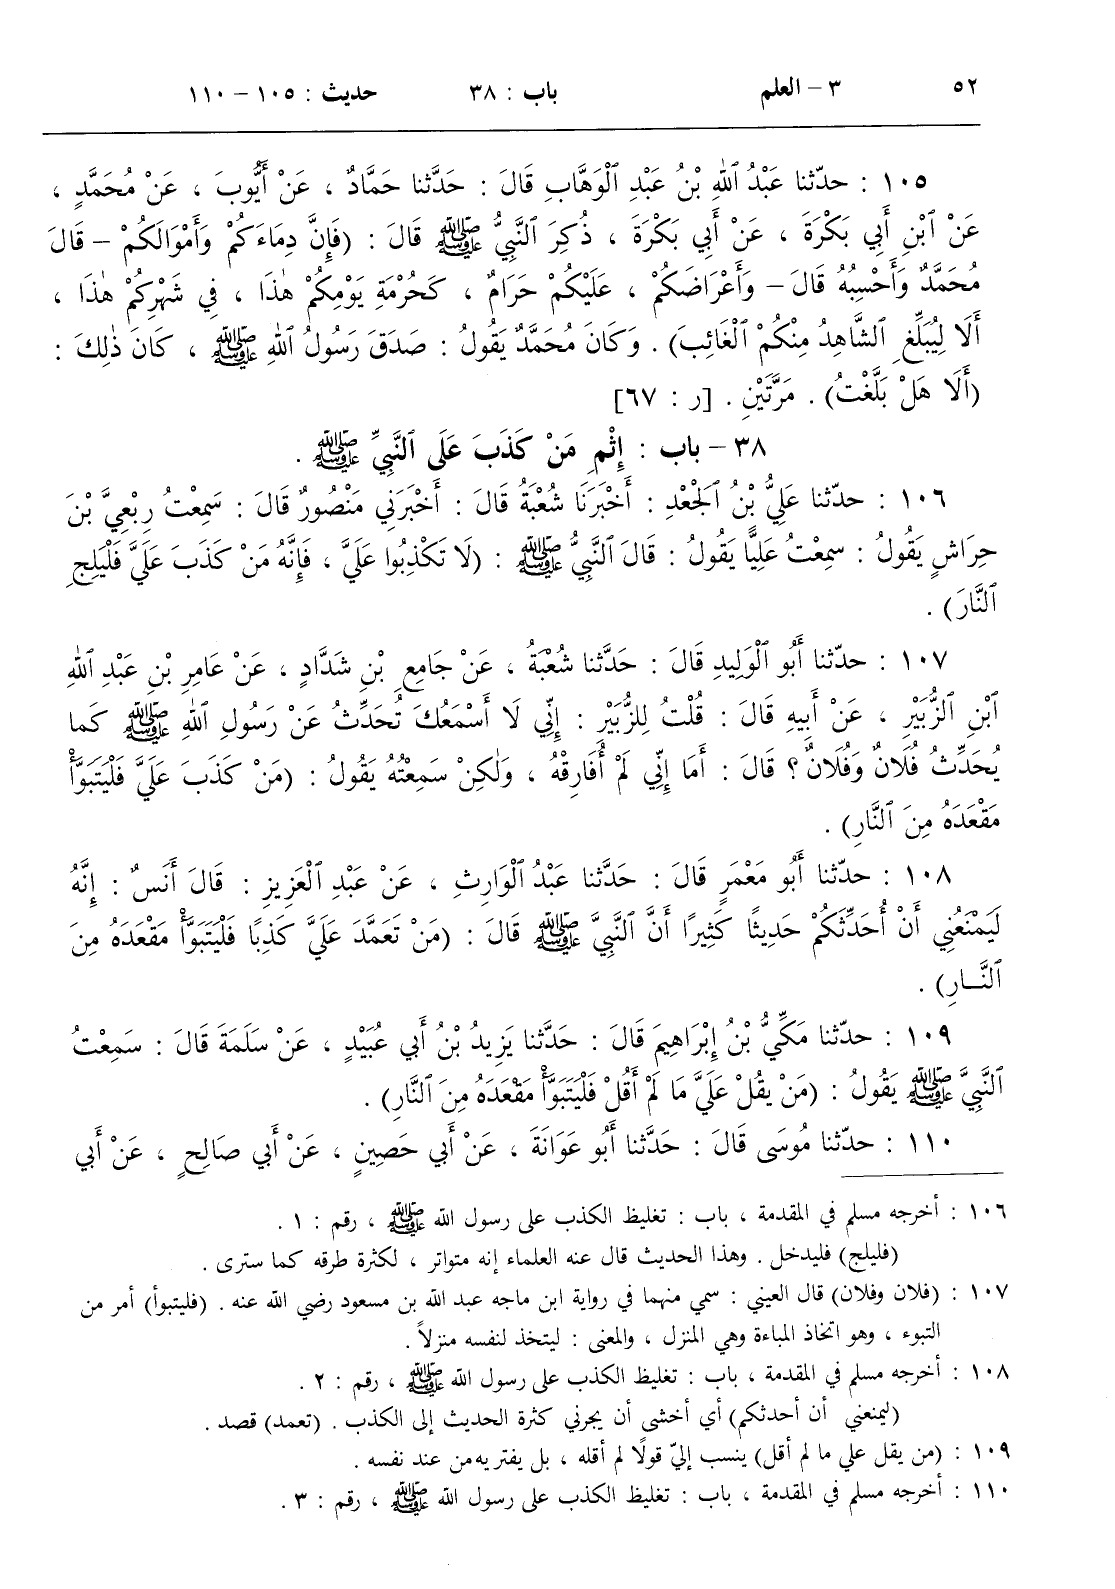 ٥٢ ٣ – العلم باب : ٣٨ حديث : ١٠٥ – ١١٠
١٠٥ : حدّثنا عَبْدُ ٱللهِ بْنُ عَبْدِ ٱلْوَهَّابِ قَالَ : حَدَّثَنا حَمَّادٌ ، عَنْ أَيُّوبَ ، عَنْ مُحَمَّدٍ ،
عَنْ ٱبْنِ أَبِي بَكْرَةَ ، عَنْ أَبِي بَكْرَةَ ، ذُكِرَ ٱلنَّبِيُّ ﷺ قَالَ : (فَإِنَّ دِمَاءَكُمْ وَأَمْوَالَكُمْ – قَالَ
مُحَمَّدٌ وَأَحْسِبُهُ قَالَ – وَأَعْرَاضَكُمْ ، عَلَيْكُمْ حَرَامٌ ، كَحُرْمَةِ يَوْمِكُمْ هٰذَا ، فِي شَهْرِكُمْ هٰذَا ،
أَلَا لِيُبَلِّغِ ٱلشَّاهِدُ مِنْكُمْ ٱلْغَائِبَ) . وَكَانَ مُحَمَّدٌ يَقُولُ : صَدَقَ رَسُولُ ٱللهِ ﷺ ، كَانَ ذٰلِكَ :
(أَلَا هَلْ بَلَّغْتُ) . مَرَّتَيْنِ . [ر : ٦٧]
٣٨ – باب : إِثْمِ مَنْ كَذَبَ عَلَى ٱلنَّبِيِّ ﷺ .
١٠٦ : حدّثنا عَلِيُّ بْنُ ٱلْجَعْدِ : أَخْبَرَنَا شُعْبَةُ قَالَ : أَخْبَرَنِي مَنْصُورٌ قَالَ : سَمِعْتُ رِبْعِيَّ بْنَ
حِرَاشٍ يَقُولُ : سمِعْتُ عَلِيًّا يَقُولُ : قَالَ ٱلنَّبِيُّ ﷺ : (لَا تَكْذِبُوا عَلَيَّ ، فَإِنَّهُ مَنْ كَذَبَ عَلَيَّ فَلْيَلِجِ
ٱلنَّارَ) .
١٠٧ : حدّثنا أَبُو ٱلْوَلِيدِ قَالَ : حَدَّثَنا شُعْبَةُ ، عَنْ جَامِعِ بْنِ شَدَّادٍ ، عَنْ عَامِرِ بْنِ عَبْدِ ٱللهِ
ٱبْنِ ٱلزُّبَيْرِ ، عَنْ أَبِيهِ قَالَ : قُلْتُ لِلزُّبَيْرِ : إِنِّي لَا أَسْمَعُكَ تُحَدِّثُ عَنْ رَسُولِ ٱللهِ ﷺ كَما
يُحَدِّثُ فُلَانٌ وَفُلَانٌ ؟ قَالَ : أَمَا إِنِّي لَمْ أُفَارِقْهُ ، وَلٰكِنْ سَمِعْتُهُ يَقُولُ : (مَنْ كَذَبَ عَلَيَّ فَلْيَتَبَوَّأْ
مَقْعَدَهُ مِنَ ٱلنَّارِ) .
١٠٨ : حدّثنا أَبُو مَعْمَرٍ قَالَ : حَدَّثَنا عَبْدُ ٱلْوَارِثِ ، عَنْ عَبْدِ ٱلْعَزِيزِ : قَالَ أَنَسٌ : إِنَّهُ
لَيَمْنَعُنِي أَنْ أُحَدِّثَكُمْ حَدِيثًا كَثِيرًا أَنَّ ٱلنَّبِيَّ ﷺ قَالَ : (مَنْ تَعَمَّدَ عَلَيَّ كَذِبًا فَلْيَتَبَوَّأْ مَقْعَدَهُ مِنَ
ٱلنَّــارِ) .
١٠٩ : حدّثنا مَكِّيُّ بْنُ إِبْرَاهِيمَ قَالَ : حَدَّثَنا يَزِيدُ بْنُ أَبِي عُبَيْدٍ ، عَنْ سَلَمَةَ قَالَ : سَمِعْتُ
ٱلنَّبِيَّ ﷺ يَقُولُ : (مَنْ يَقُلْ عَلَيَّ مَا لَمْ أَقُلْ فَلْيَتَبَوَّأْ مَقْعَدَهُ مِنَ ٱلنَّارِ) .
١١٠ : حدّثنا مُوسَى قَالَ : حَدَّثَنا أَبُو عَوَانَةَ ، عَنْ أَبِي حَصِينٍ ، عَنْ أَبِي صَالِحٍ ، عَنْ أَبِي
١٠٦ : أخرجه مسلم في المقدمة ، باب : تغليظ الكذب على رسول الله ﷺ ، رقم : ١ .
(فليلج) فليدخل . وهذا الحديث قال عنه العلماء إنه متواتر ، لكثرة طرقه كما سترى .
١٠٧ : (فلان وفلان) قال العيني : سمي منهما في رواية ابن ماجه عبد الله بن مسعود رضي الله عنه . (فليتبوأ) أمر من
التبوء ، وهو اتخاذ المباءة وهي المنزل ، والمعنى : ليتخذ لنفسه منزلاً .
١٠٨ : أخرجه مسلم في المقدمة ، باب : تغليظ الكذب على رسول الله ﷺ ، رقم : ٢ .
(ليمنعني أن أحدثكم) أي أخشى أن يجرني كثرة الحديث إلى الكذب . (تعمد) قصد .
١٠٩ : (من يقل علي ما لم أقل) ينسب إليّ قولًا لم أقله ، بل يفتريه من عند نفسه .
١١٠ : أخرجه مسلم في المقدمة ، باب : تغليظ الكذب على رسول الله ﷺ ، رقم : ٣ .